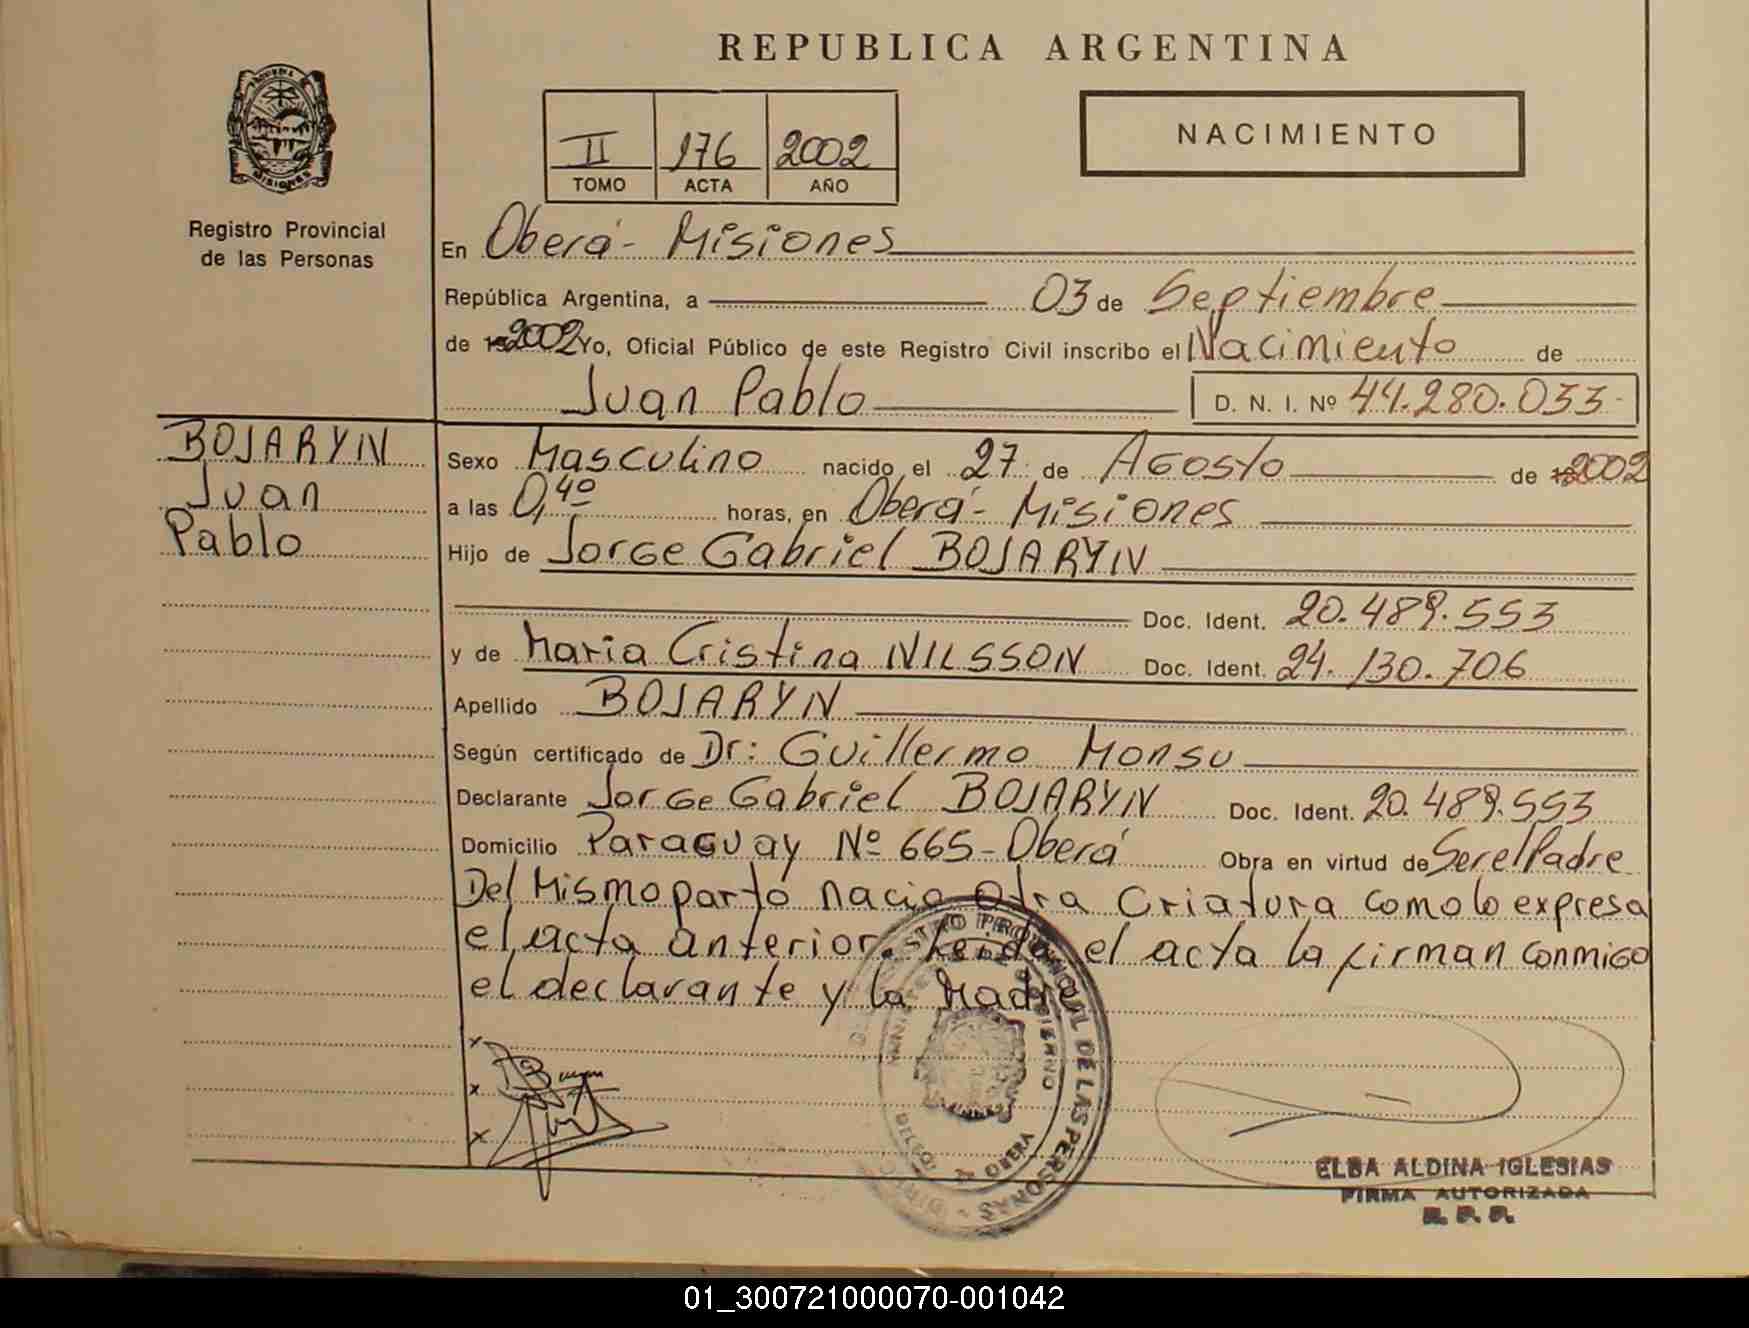 REPUBLICA ARGENTINA
MISIONES
Registro Provincial
de las Personas
II 176 2002
TOMO ACTA AÑO
NACIMIENTO
En Oberá - Misiones
República Argentina, a 03 de Septiembre
de 2002 Yo, Oficial Público de este Registro Civil inscribo el Nacimiento de
Juan Pablo D. N. I. Nº 44.280.033-
BOJARYN
Juan
Pablo
Sexo Masculino nacido el 27 de Agosto de 2002
a las 0,40 horas, en Oberá - Misiones
Hijo de Jorge Gabriel BOJARYN
Doc. Ident. 20.489.553
y de Maria Cristina NILSSON Doc. Ident. 24.130.706
Apellido BOJARYN
Según certificado de Dr: Guillermo Monsu
Declarante Jorge Gabriel BOJARYN Doc. Ident. 20.489.553
Domicilio Paraguay Nº 665 - Oberá Obra en virtud de Ser el Padre
Del Mismo parto nacio otra Criatura como lo expresa
el acta anterior. Leida el acta la firman conmigo
el declarante y la Madre
x
x
x
REGISTRO PROVINCIAL DE LAS PERSONAS
MINISTERIO DE GOBIERNO
OBERA
ELBA ALDINA IGLESIAS
FIRMA AUTORIZADA
R. P. P.
01_300721000070-001042